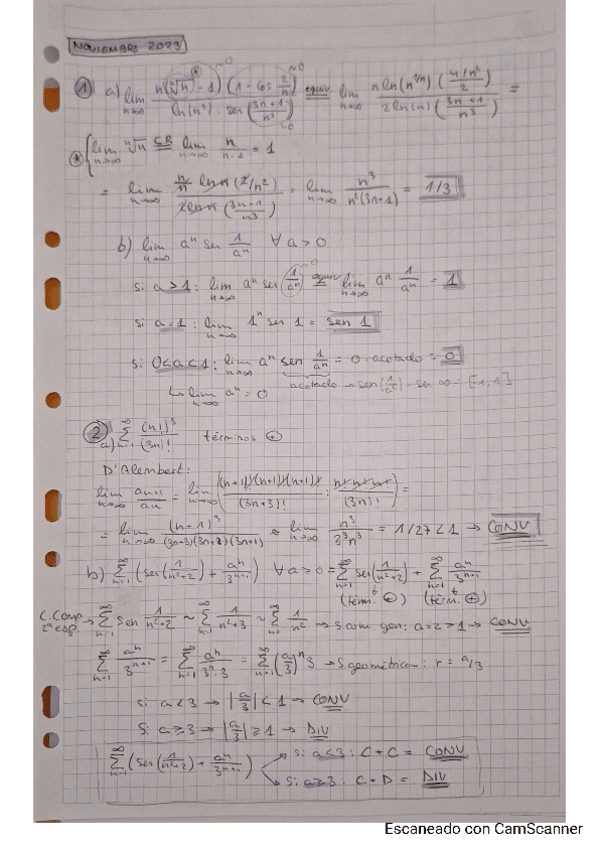 NOVIEMBRE 2023
① a) lim n→∞ n(ⁿ√n - 1)(1 - cos 2/n) / ln(n²) · sen(3n+1/n³) equiv lim n→∞ n ln(n^1/n) (4/n²/2) / 2 ln(n) (3n+1/n³) =
* { lim n→∞ ⁿ√n C.R. lim n→∞ n/n-1 = 1
= lim n→∞ n/n ln n (2/n²) / 2 ln n (3n+1/n³) = lim n→∞ n³/n²(3n+1) = 1/3
b) lim n→∞ aⁿ sen 1/aⁿ ∀ a > 0
si a > 1 : lim n→∞ aⁿ sen (1/aⁿ) ~0 equiv lim n→∞ aⁿ 1/aⁿ = 1
si a = 1 : lim n→∞ 1ⁿ sen 1 = sen 1
si 0 < a < 1 : lim n→∞ aⁿ sen 1/aⁿ = 0 · acotado = 0
↳ lim n→∞ aⁿ = 0 acotado → sen(1/aⁿ) → sen ∞ = [-1,1]
② a) ∞ Σ n=1 (n!)³/(3n)! términos ⊕
D'Alembert:
lim n→∞ an+1/an = lim n→∞ ((n+1)!(n+1)!(n+1)!/(3n+3)! : n! n! n!/(3n)!) =
= lim n→∞ (n+1)³/(3n+3)(3n+2)(3n+1) ≈ lim n→∞ n³/3³n³ = 1/27 < 1 → CONV
b) ∞ Σ n=1 (sen(1/n²+2) + aⁿ/3ⁿ⁺¹) ∀ a > 0 = ∞ Σ n=1 sen(1/n²+2) + ∞ Σ n=1 aⁿ/3ⁿ⁺¹
(térm. ⊕) (térm. ⊕)
C. Comp 2ª esp. → ∞ Σ n=1 sen 1/n²+2 ~ ∞ Σ n=1 1/n²+3 ~ ∞ Σ n=1 1/n² → S. arm. gen: a = 2 > 1 → CONV
∞ Σ n=1 aⁿ/3ⁿ⁺¹ = ∞ Σ n=1 aⁿ/3ⁿ·3 = ∞ Σ n=1 (a/3)ⁿ 3 → S. geométrica: r = a/3
si a < 3 → |a/3| < 1 → CONV
Si a ≥ 3 → |a/3| ≥ 1 → DIV
∞ Σ n=1 (sen(1/n²+2) + aⁿ/3ⁿ⁺¹) si a < 3 : C + C = CONV
Si a ≥ 3 : C + D = DIV
Escaneado con CamScanner